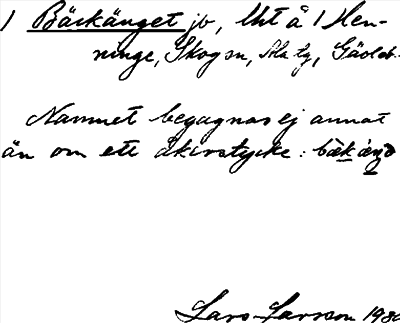 1 Bäckänget jo, Uht å 1 Hen-
ninge, Skog sn, Ala tg, Gävleb.
Namnet begagnas ej annat
än om ett åkerstycke :
Lars Larsson 1930